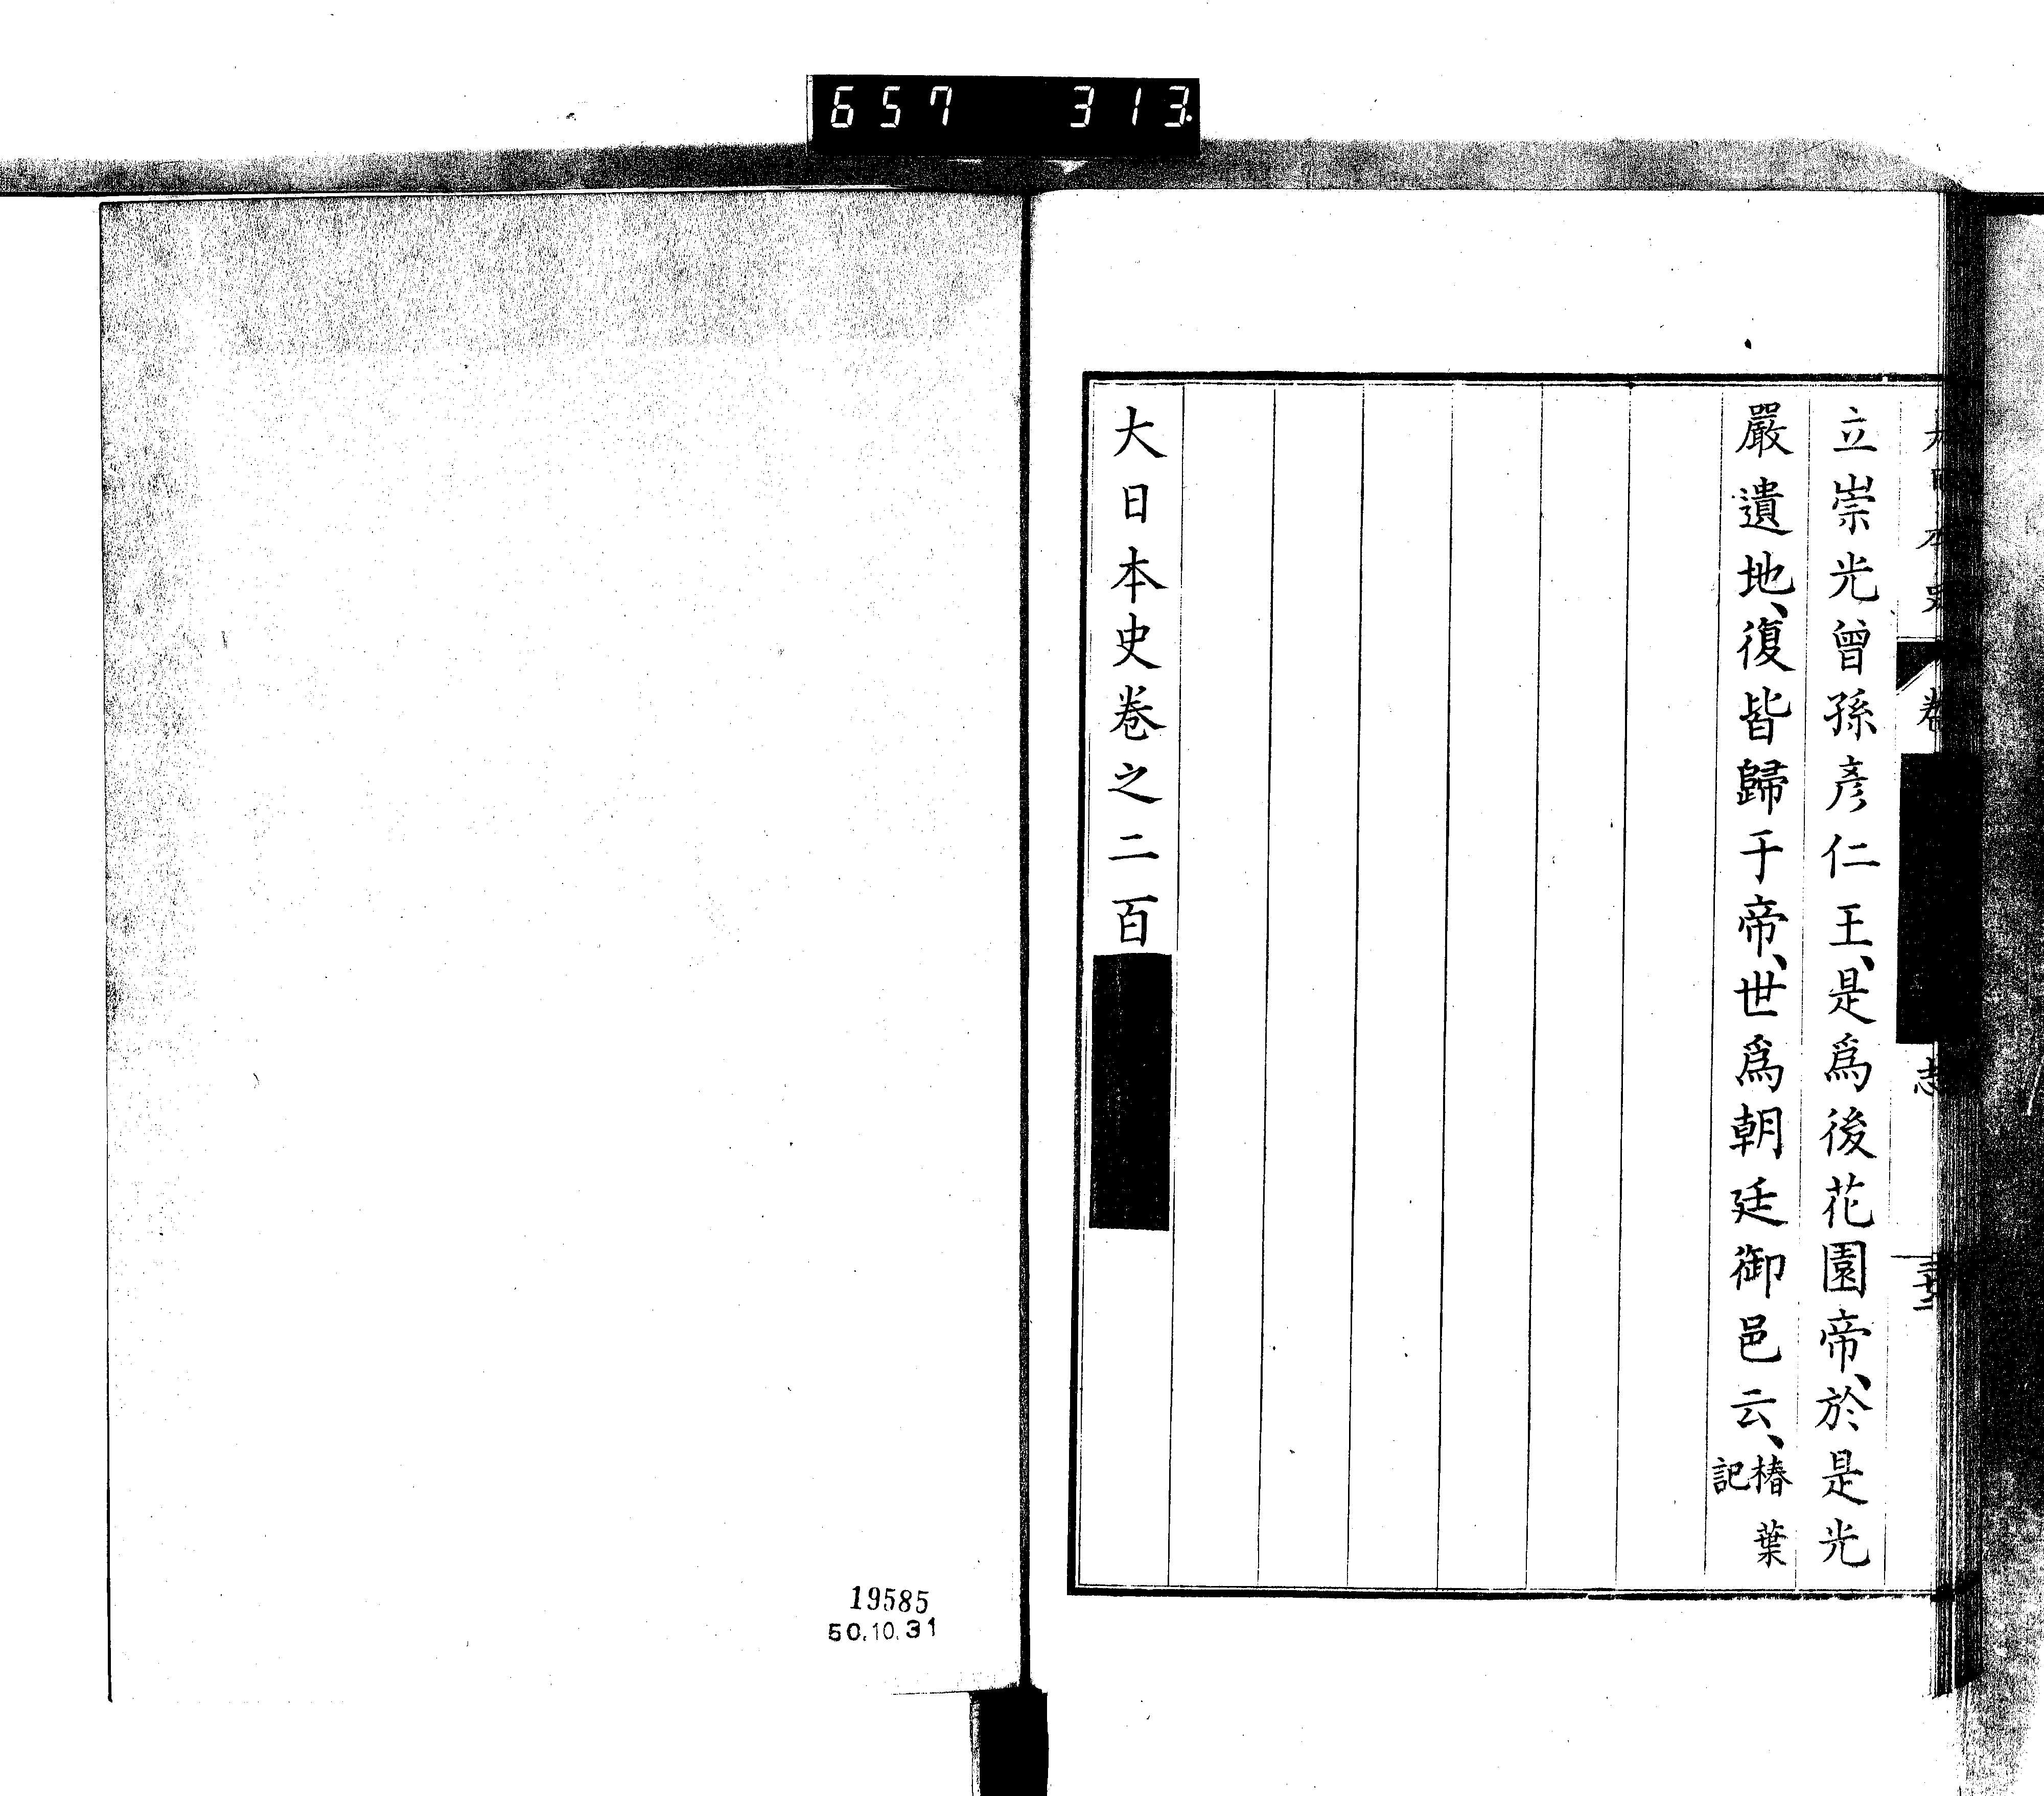 657 313.
立崇光曾孫彥仁王、是爲後花園帝、於是光
嚴遺地、復皆歸于帝、世爲朝廷御邑云、椿葉記
大日本史卷之二百
19585
50.10.31